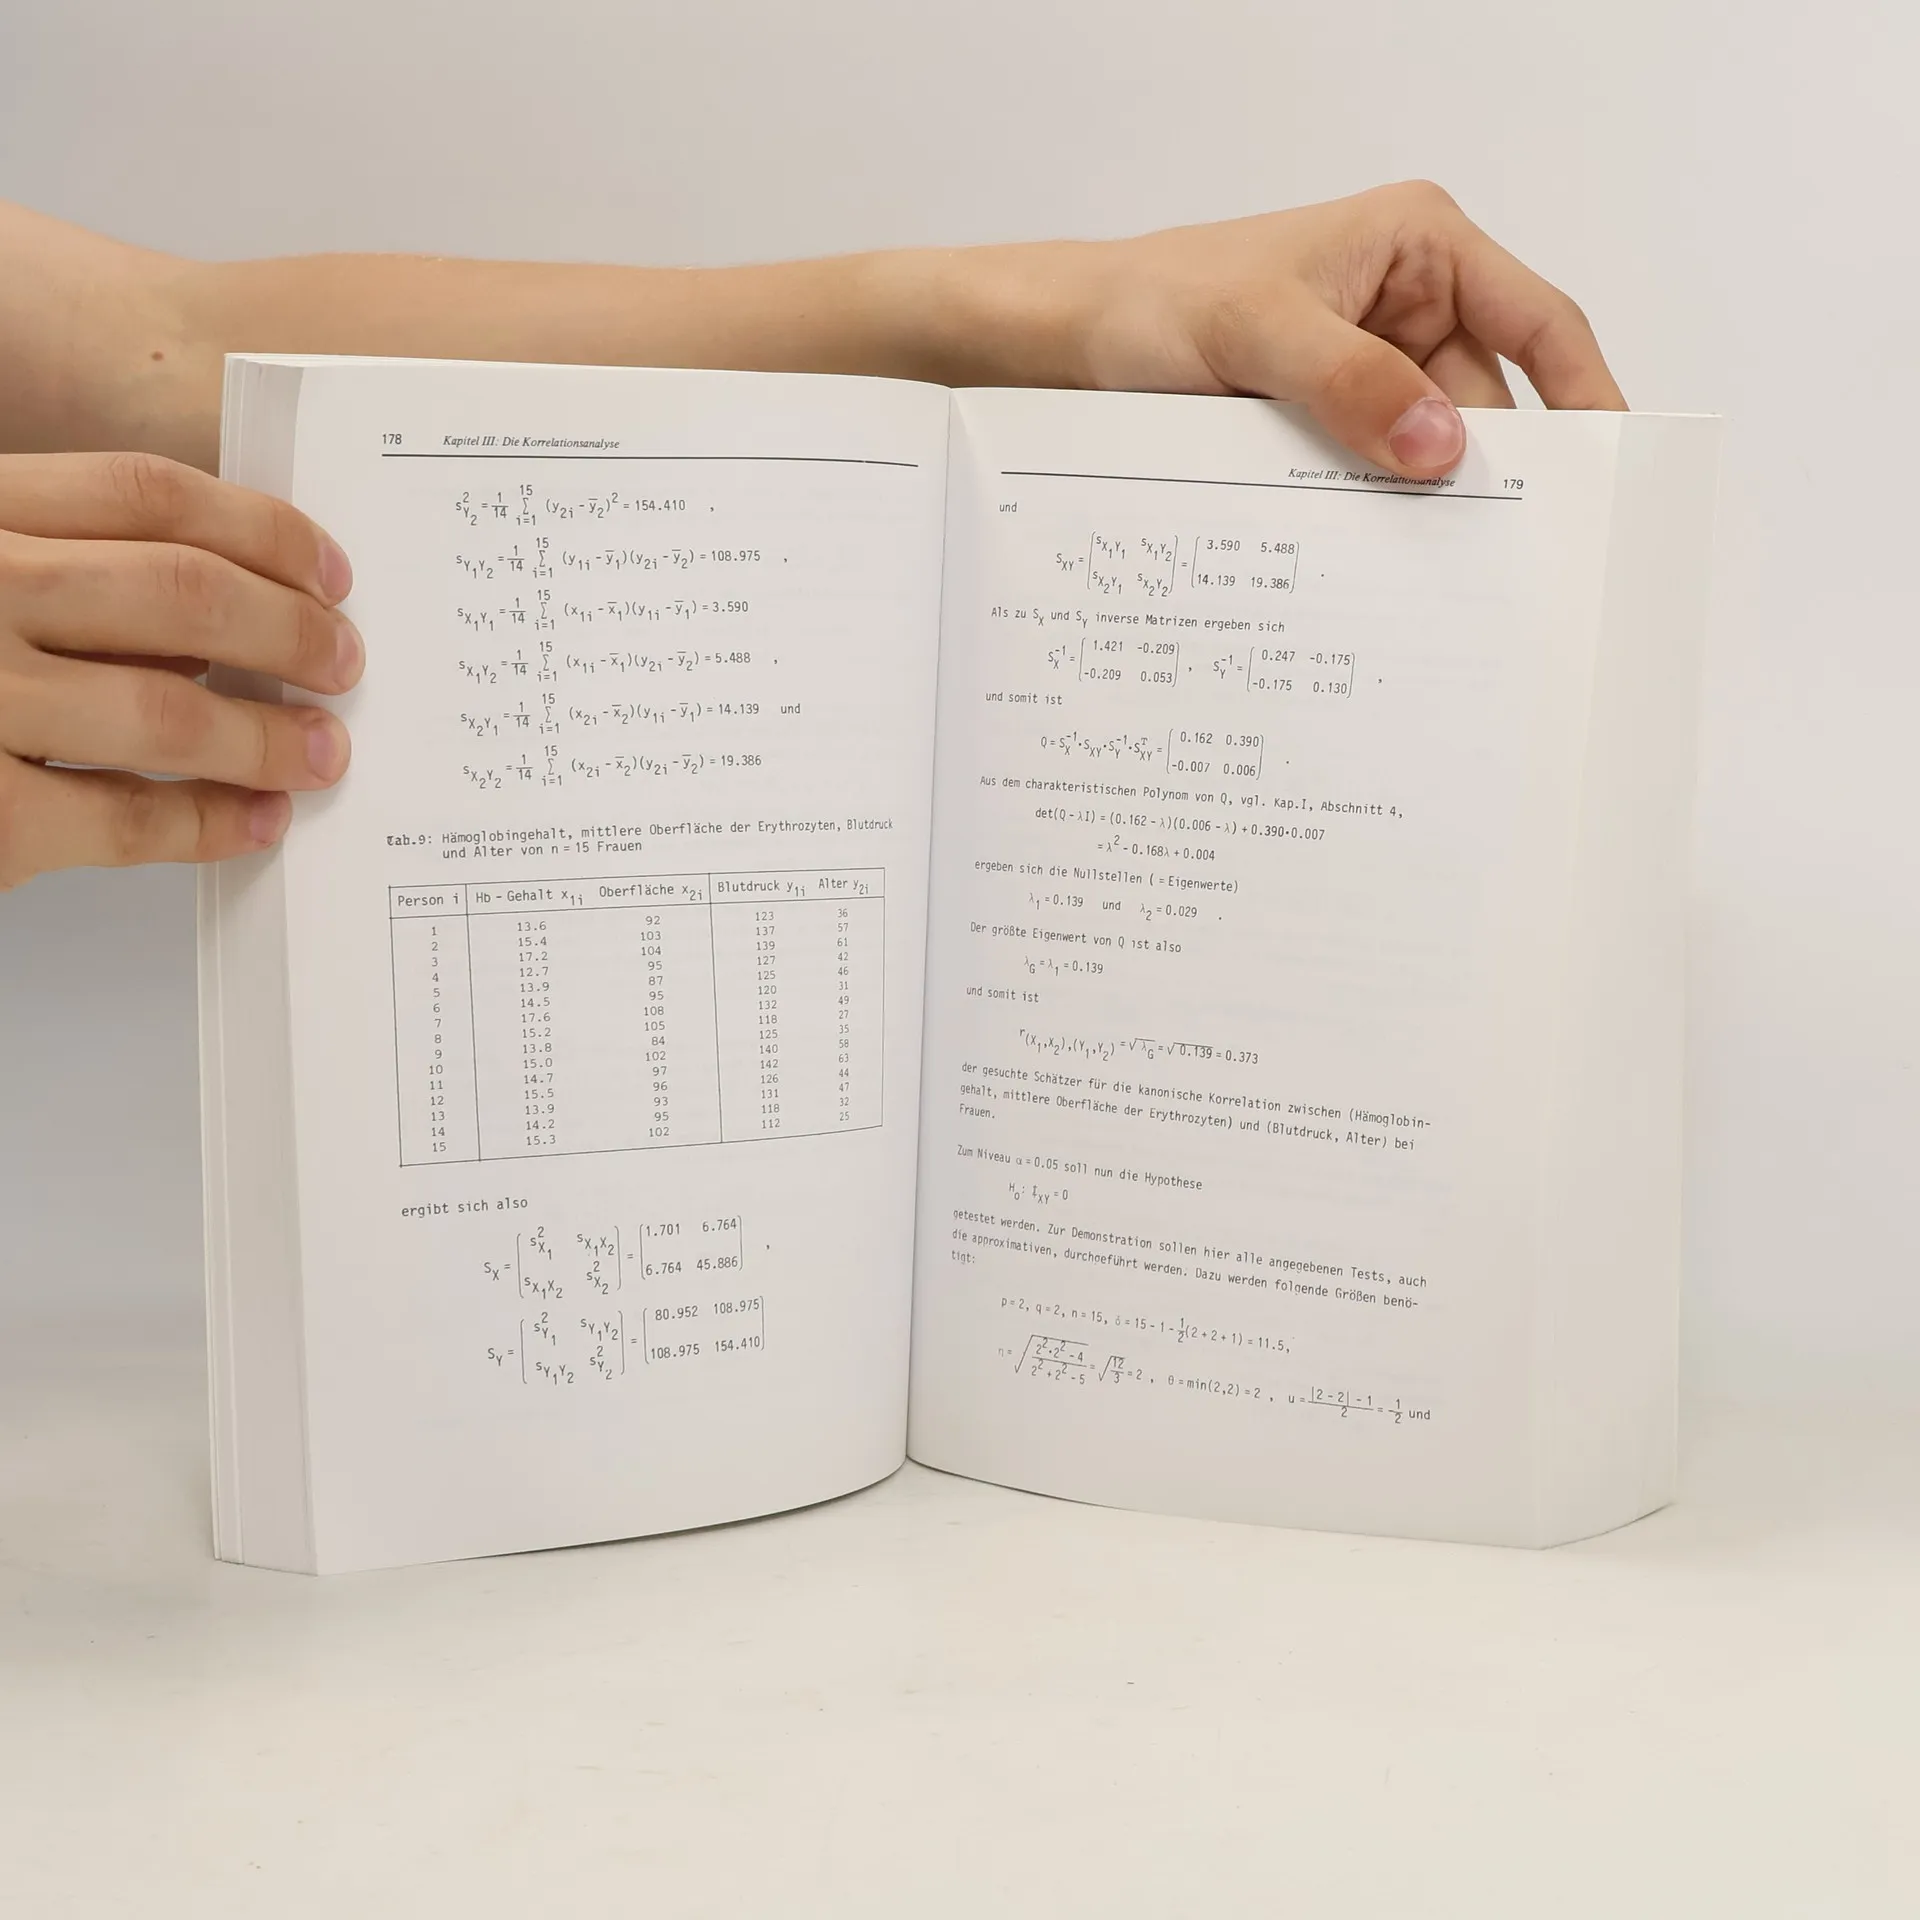 178 Kapitel III: Die Korrelationsanalyse
s²_Y₂ = 1/14 Σ_{i=1}^{15} (y₂ᵢ - ȳ₂)² = 154.410 ,
s_Y₁Y₂ = 1/14 Σ_{i=1}^{15} (y₁ᵢ - ȳ₁)(y₂ᵢ - ȳ₂) = 108.975 ,
s_X₁Y₁ = 1/14 Σ_{i=1}^{15} (x₁ᵢ - x̄₁)(y₁ᵢ - ȳ₁) = 3.590
s_X₁Y₂ = 1/14 Σ_{i=1}^{15} (x₁ᵢ - x̄₁)(y₂ᵢ - ȳ₂) = 5.488 ,
s_X₂Y₁ = 1/14 Σ_{i=1}^{15} (x₂ᵢ - x̄₂)(y₁ᵢ - ȳ₁) = 14.139 und
s_X₂Y₂ = 1/14 Σ_{i=1}^{15} (x₂ᵢ - x̄₂)(y₂ᵢ - ȳ₂) = 19.386
Tab.9: Hämoglobingehalt, mittlere Oberfläche der Erythrozyten, Blutdruck
und Alter von n = 15 Frauen
Person i Hb - Gehalt x₁ᵢ Oberfläche x₂ᵢ Blutdruck y₁ᵢ Alter y₂ᵢ
1 13.6 92 123 36
2 15.4 103 137 57
3 17.2 104 139 61
4 12.7 95 127 42
5 13.9 87 125 46
6 14.5 95 120 31
7 17.6 108 132 49
8 15.2 105 118 27
9 13.8 84 125 35
10 15.0 102 140 58
11 14.7 97 142 63
12 15.5 96 126 44
13 13.9 93 131 47
14 14.2 95 118 32
15 15.3 102 112 25
ergibt sich also
S_X = ( s²_X₁ s_X₁X₂ ; s_X₁X₂ s²_X₂ ) = ( 1.701 6.764 ; 6.764 45.886 ) ,
S_Y = ( s²_Y₁ s_Y₁Y₂ ; s_Y₁Y₂ s²_Y₂ ) = ( 80.952 108.975 ; 108.975 154.410 )
Kapitel III: Die Korrelationsanalyse 179
und
S_XY = ( s_X₁Y₁ s_X₁Y₂ ; s_X₂Y₁ s_X₂Y₂ ) = ( 3.590 5.488 ; 14.139 19.386 ) .
Als zu S_X und S_Y inverse Matrizen ergeben sich
S_X⁻¹ = ( 1.421 -0.209 ; -0.209 0.053 ) , S_Y⁻¹ = ( 0.247 -0.175 ; -0.175 0.130 ) ,
und somit ist
Q = S_X⁻¹·S_XY·S_Y⁻¹·S_XY^T = ( 0.162 0.390 ; -0.007 0.006 ) .
Aus dem charakteristischen Polynom von Q, vgl. Kap.I, Abschnitt 4,
det(Q - λI) = (0.162 - λ)(0.006 - λ) + 0.390·0.007
= λ² - 0.168λ + 0.004
ergeben sich die Nullstellen ( = Eigenwerte)
λ₁ = 0.139 und λ₂ = 0.029 .
Der größte Eigenwert von Q ist also
λ_G = λ₁ = 0.139
und somit ist
r_(X₁,X₂),(Y₁,Y₂) = √λ_G = √0.139 = 0.373
der gesuchte Schätzer für die kanonische Korrelation zwischen (Hämoglobin-
gehalt, mittlere Oberfläche der Erythrozyten) und (Blutdruck, Alter) bei
Frauen.
Zum Niveau α = 0.05 soll nun die Hypothese
H₀: Σ_XY = 0
getestet werden. Zur Demonstration sollen hier alle angegebenen Tests, auch
die approximativen, durchgeführt werden. Dazu werden folgende Größen benö-
tigt:
p = 2, q = 2, n = 15, δ = 15 - 1 - 1/2(2 + 2 + 1) = 11.5,
η = √((2²·2² - 4)/(2² + 2² - 5)) = √(12/3) = 2 , θ = min(2,2) = 2 , u = (|2 - 2| - 1)/2 = -1/2 und